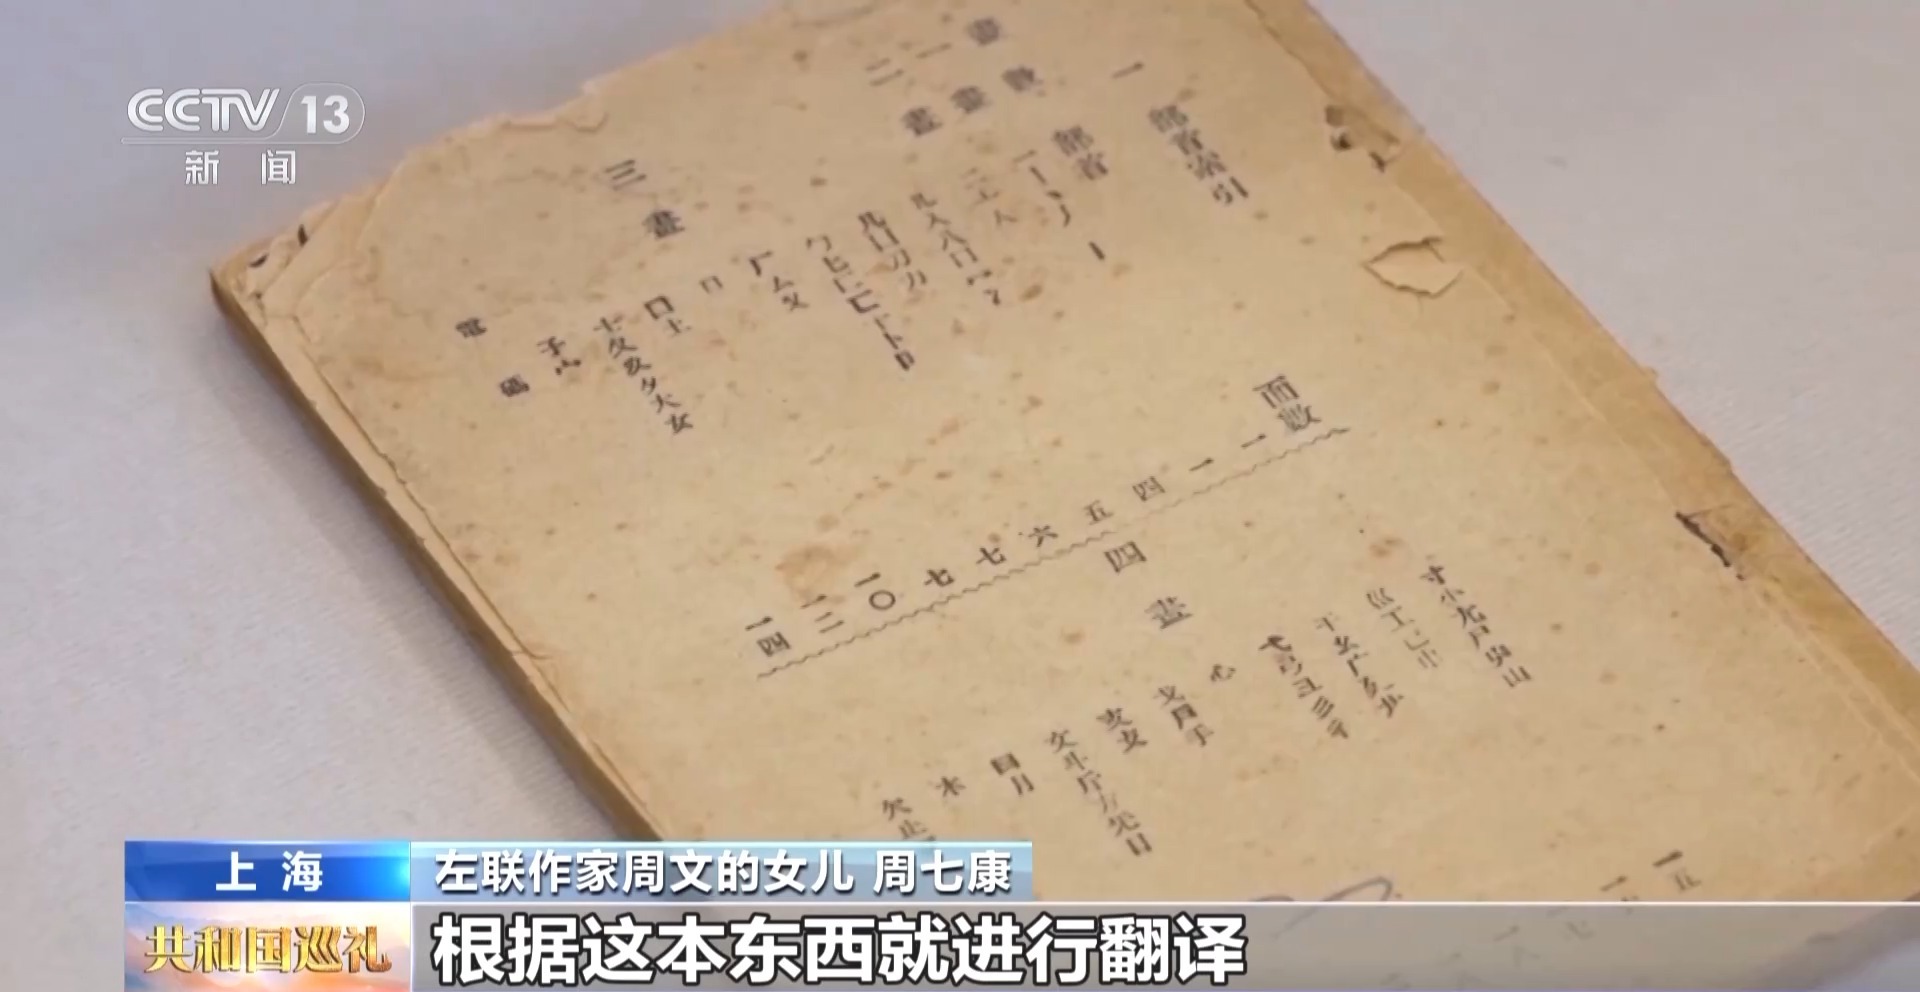 CCTV 13
新闻
部首索引
一
畫數
一畫
二畫
三畫
部首
一丨丶丿
二亠人
儿入八冂冖冫
几凵刀力
勹匕匚匸十卜卩
厂厶又
口
囗土
士夂夊夕大女
子宀
電碼
面數
一
一
四
五
六
七
七
一〇
一二
一四
四畫
寸小尢尸屮山
巛工己巾
干幺广廴廾
弋弓彐彡彳
心
戈戶手
支攴
文斗斤方无日
曰月
木
欠止
一五
上海
左联作家周文的女儿 周七康
共和国巡礼
根据这本东西就进行翻译